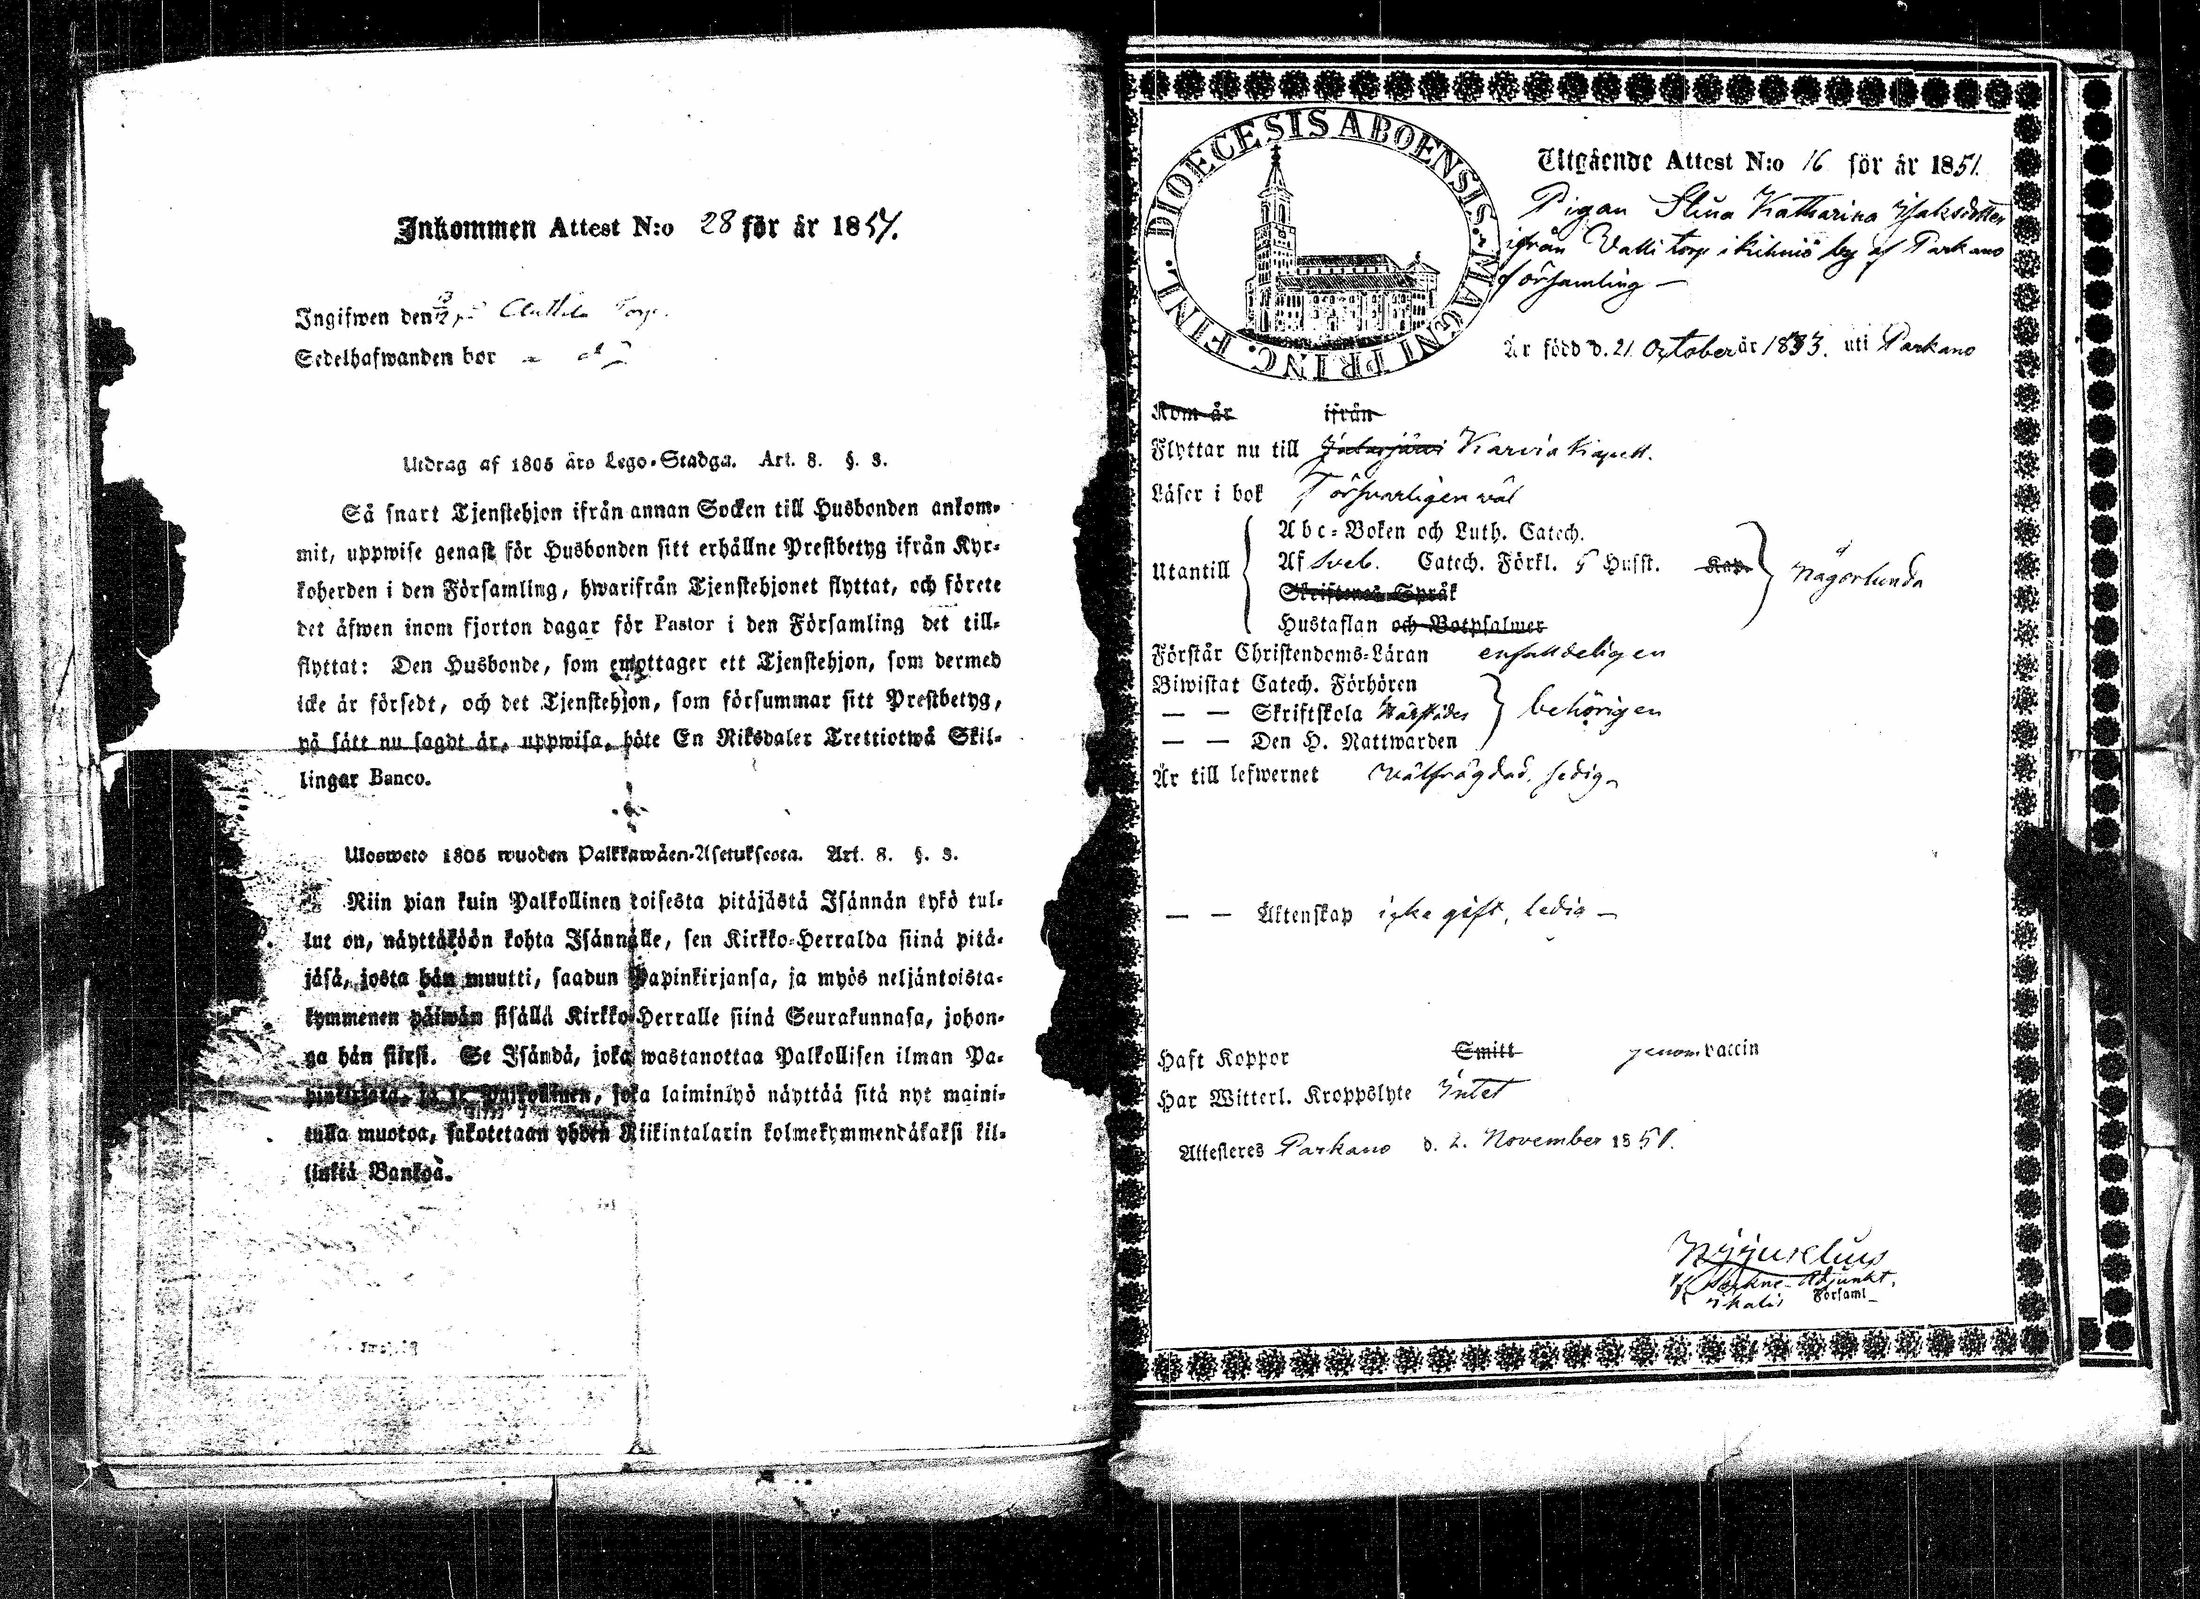 Inkommen Attest N:o 28 för år 1851.
Ingifwen den
Sedelhafwanden bor
Utdrag af 1805 års Lego-Stadga. Art. 8. §. 3.
Så snart Tjenstehjon ifrån annan Socken till Husbonden ankom-
mit, uppwise genast för Husbonden sitt erhållne Prestbetyg ifrån Kyr-
koherden i den Församling, hwarifrån Tjenstehjonet flyttat, och förete
det äfwen inom fjorton dagar för Pastor i den Församling det till-
flyttat: Den Husbonde, som emottager ett Tjenstehjon, som dermed
icke är försedt, och det Tjenstehjon, som försummar sitt Prestbetyg,
på sätt nu sagdt är, uppwisa, böte En Riksdaler Trettiotwå Skil-
lingar Banco.
Ulosweto 1805 wuoden Palkkawäen-Asetuksesta. Art. 8. §. 3.
Niin pian kuin Palkollinen toisesta pitäjästä Isännän tykö tul-
lut on, näyttäköön kohta Isännälle, sen Kirkko-Herralda siinä pitä-
jäsä, josta hän muutti, saadun Papinkirjansa, ja myös neljäntoista-
kymmenen päiwän sisällä Kirkko-Herralle siinä Seurakunnasa, johon-
ga hän siirsi. Se Isändä, joka wastanottaa Palkollisen ilman Pa-
pinkirjata, ja se Palkollinen, joka laiminlyö näyttää sitä nyt maini-
tulla muotoa, sakotetaan yhden Riikintalarin kolmekymmendäkaksi kil-
linkiä Bankoa.
DIOECESIS ABOENSIS. MAGNI PRINC. FINL.
Utgående Attest N:o 16 för år 1851.
Pigan Stina Katharina Isaksdotter
ifrån Valli torp i Kihniö by af Parkano
församling —
Är född d. 21 October år 1833. uti Parkano
Kom år ifrån
Flyttar nu till Karvia Kapell.
Läser i bok Försvarligen väl
Abc-Boken och Luth. Catech.
Utantill Af Sveb. Catech. Förkl. 5 Hufst. Kap. någorlunda
Skriftenes Språk
Hustaflan och Botpsalmer
Förstår Christendoms-Läran enfalldeligen
Biwistat Catech. Förhören
— — Skriftskola härstädes behörigen
— — Den H. Nattwarden
Är till lefwernet välfrägdad, ledig
— — Äktenskap icke gift, ledig —
Haft Koppor Smitt genom vaccin
Har Witterl. Kroppslyte Intet
Attesteres Parkano d. 2. November 1851.
Adjunkt.
Församl